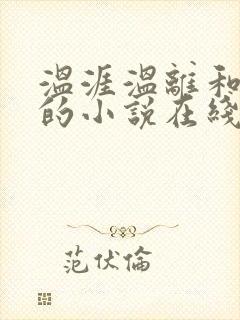 温涯温離和
的小说在綫
范伏倫